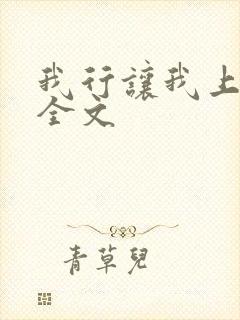 我行讓我上
全文
青草兒